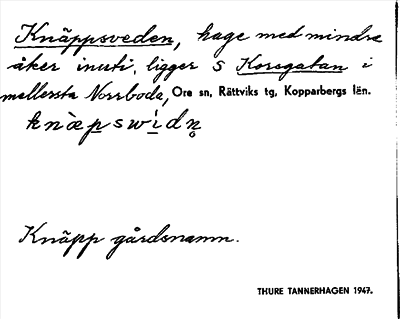 Knäppsveden, hage med mindre
åker inuti, ligger S Korsgatan i
mellersta Norrboda, Ore sn, Rättviks tg, Kopparbergs län.
knæpswidn̥
Knäpp gårdsnamn.
THURE TANNERHAGEN 1947.